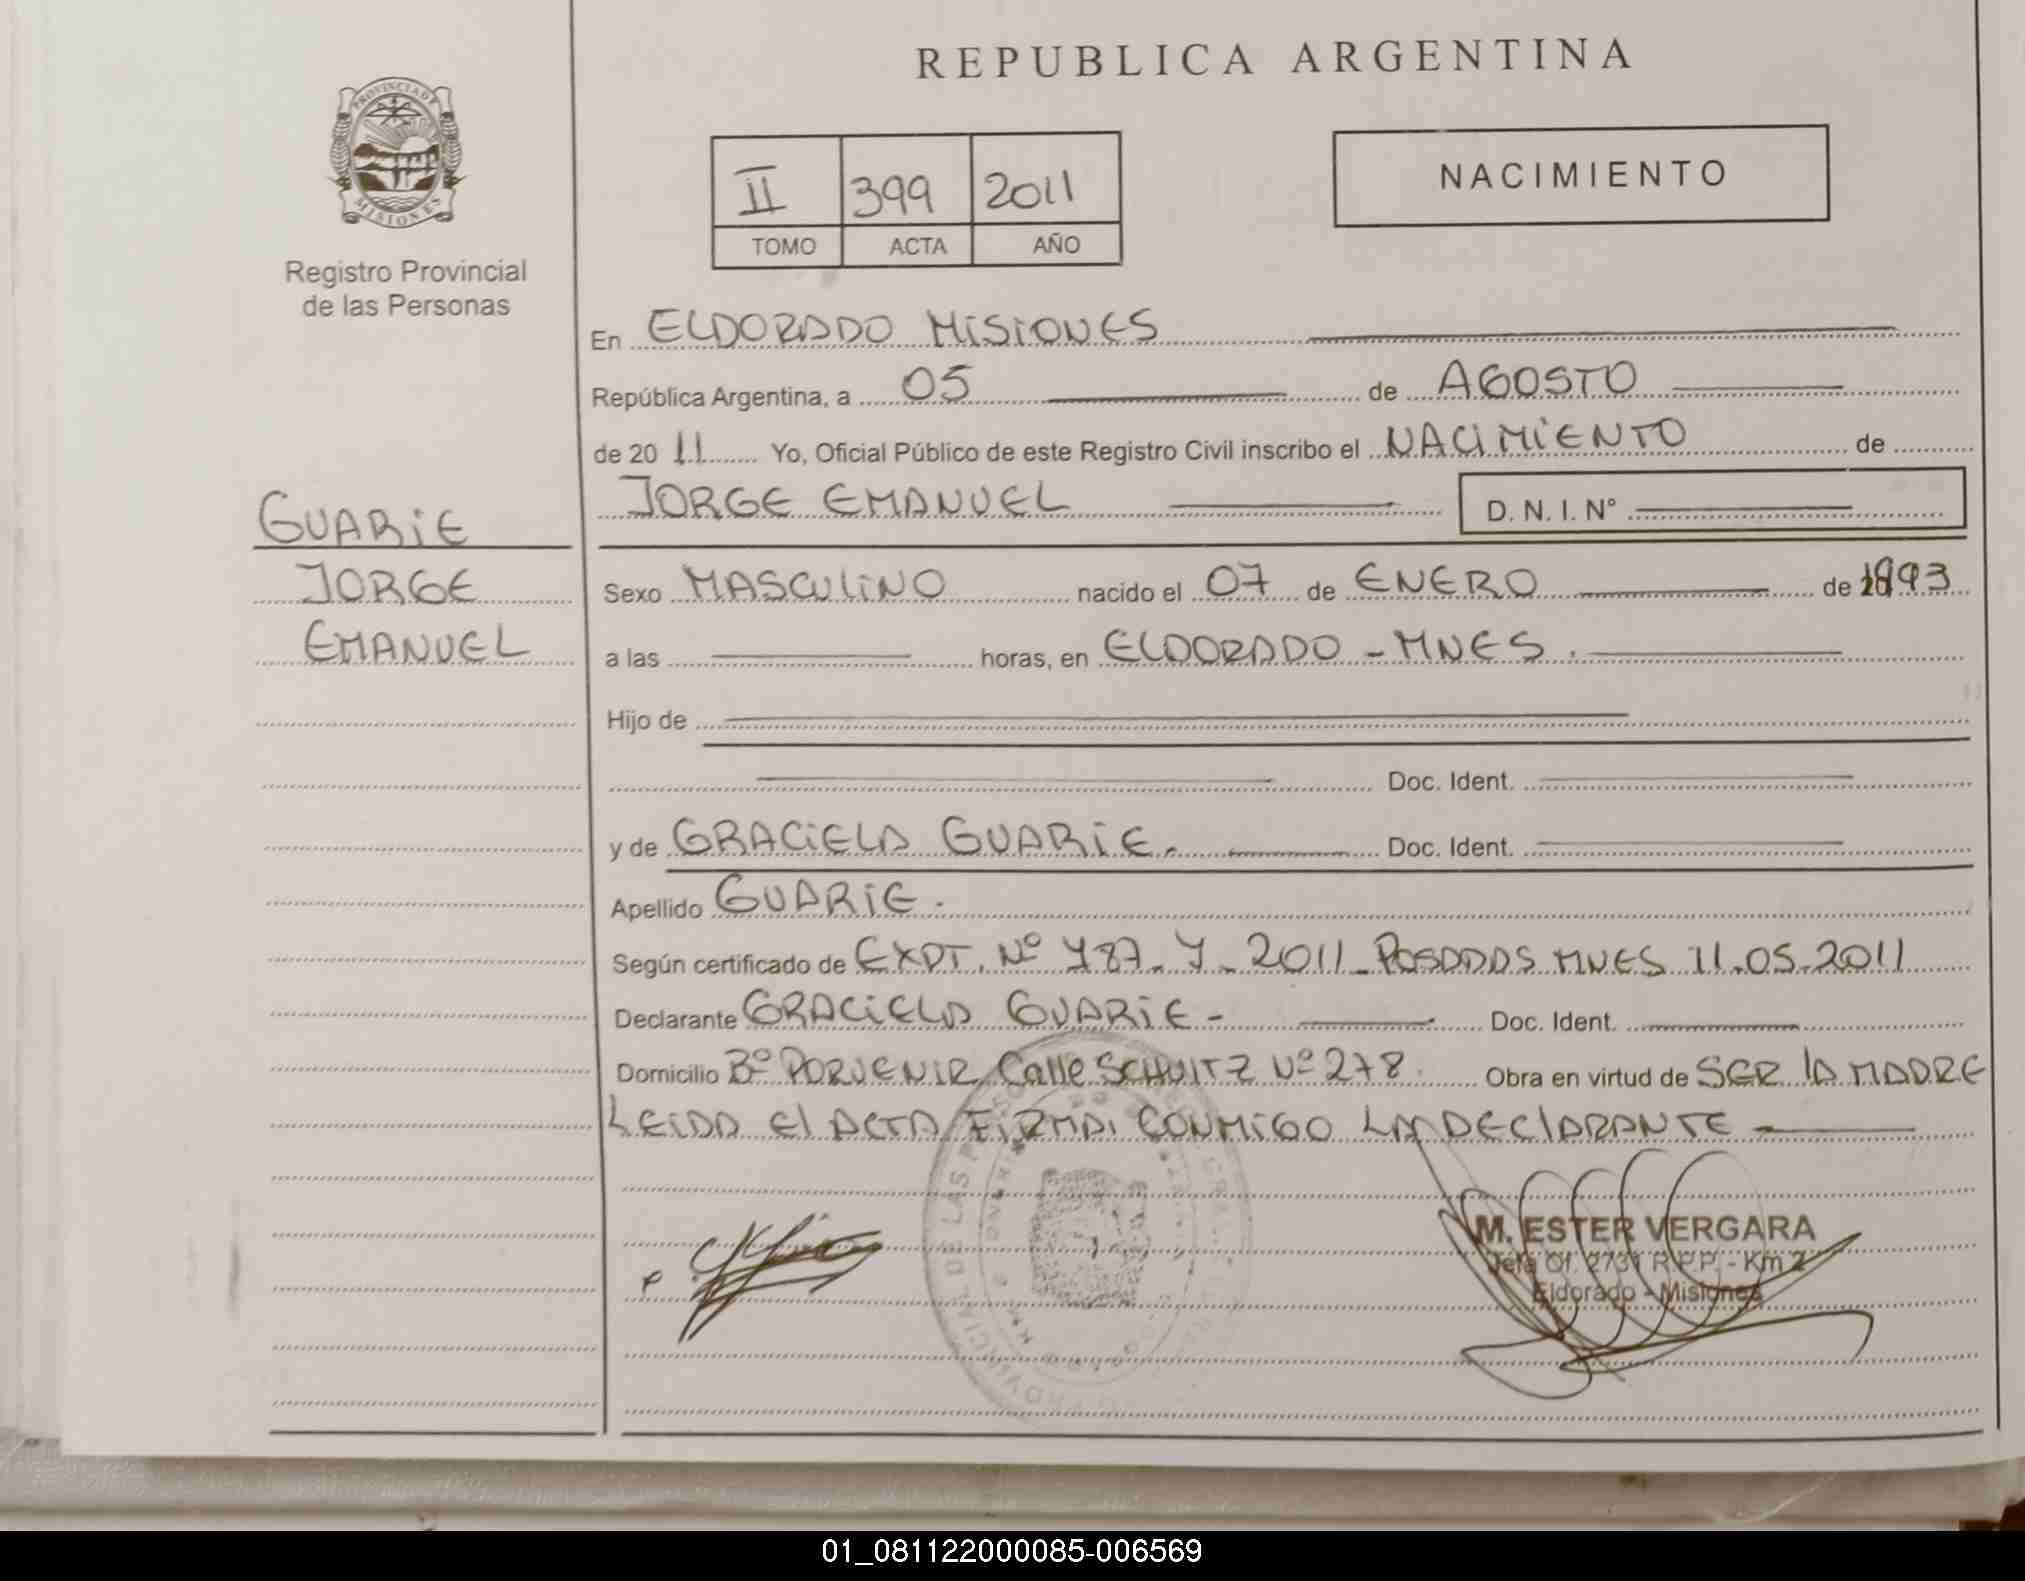 REPUBLICA ARGENTINA
PROVINCIA DE MISIONES
Registro Provincial
de las Personas
II 399 2011
TOMO ACTA AÑO
NACIMIENTO
En ELDORADO MISIONES
República Argentina, a 05 de AGOSTO
de 20 11 Yo, Oficial Público de este Registro Civil inscribo el NACIMIENTO de
JORGE EMANUEL D. N. I. N°
GUARIE
JORGE
EMANUEL
Sexo MASCULINO nacido el 07 de ENERO de 1993
a las horas, en ELDORADO - MNES.
Hijo de
Doc. Ident.
y de GRACIELA GUARIE. Doc. Ident.
Apellido GUARIE.
Según certificado de EXDT. Nº 787-Y-2011-POSADAS MNES 11.05.2011
Declarante GRACIELA GUARIE - Doc. Ident.
Domicilio Bº PORVENIR Calle SCHUITZ Nº 278. Obra en virtud de SER lA MADRE
LEIDA El ACTA FIRMA CONMIGO LA DEClARANTE
M. ESTER VERGARA
Jefa Of. 2731 R.P.P. - Km 2
Eldorado - Misiones
01_081122000085-006569